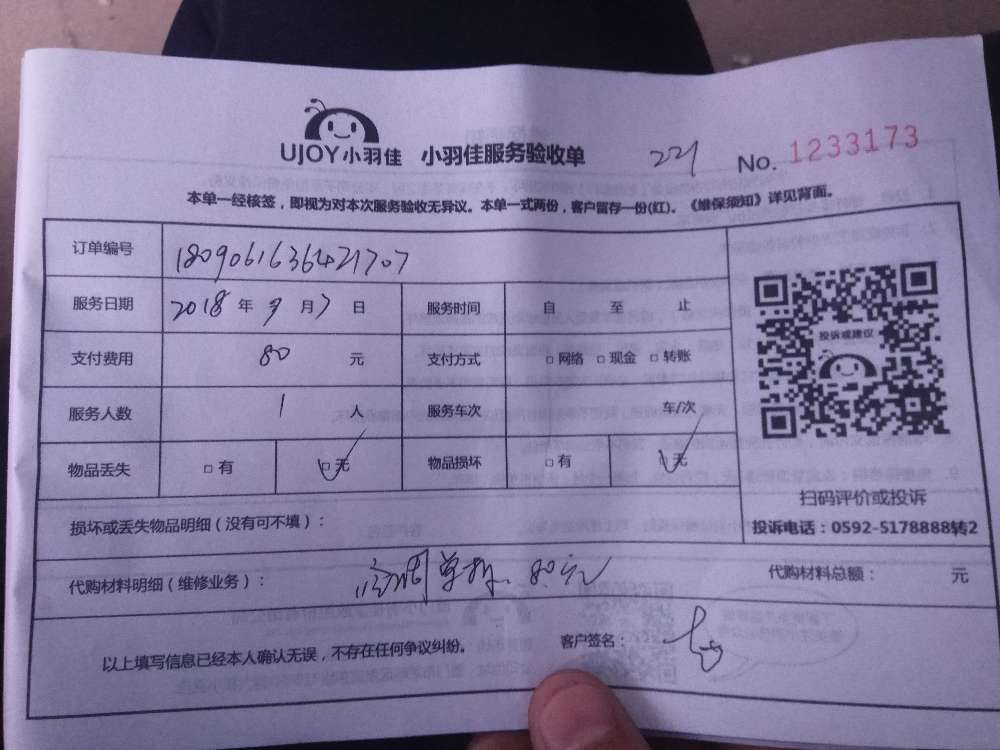 UJOY小羽佳 小羽佳服务验收单 221 No. 1233173
本单一经核签，即视为对本次服务验收无异议。本单一式两份，客户留存一份(红)。《维保须知》详见背面。
订单编号 180906163642１707
服务日期 2018 年 9 月 7 日 服务时间 自 至 止
支付费用 80 元 支付方式 □网络 □现金 □转账
投诉或建议
服务人数 1 人 服务车次 车/次
物品丢失 □有 □无 物品损坏 □有 □无
扫码评价或投诉
损坏或丢失物品明细（没有可不填）：
投诉电话：0592-5178888转2
代购材料明细（维修业务）： 空调单拆 80元 代购材料总额： 元
以上填写信息已经本人确认无误，不存在任何争议纠纷。 客户签名：